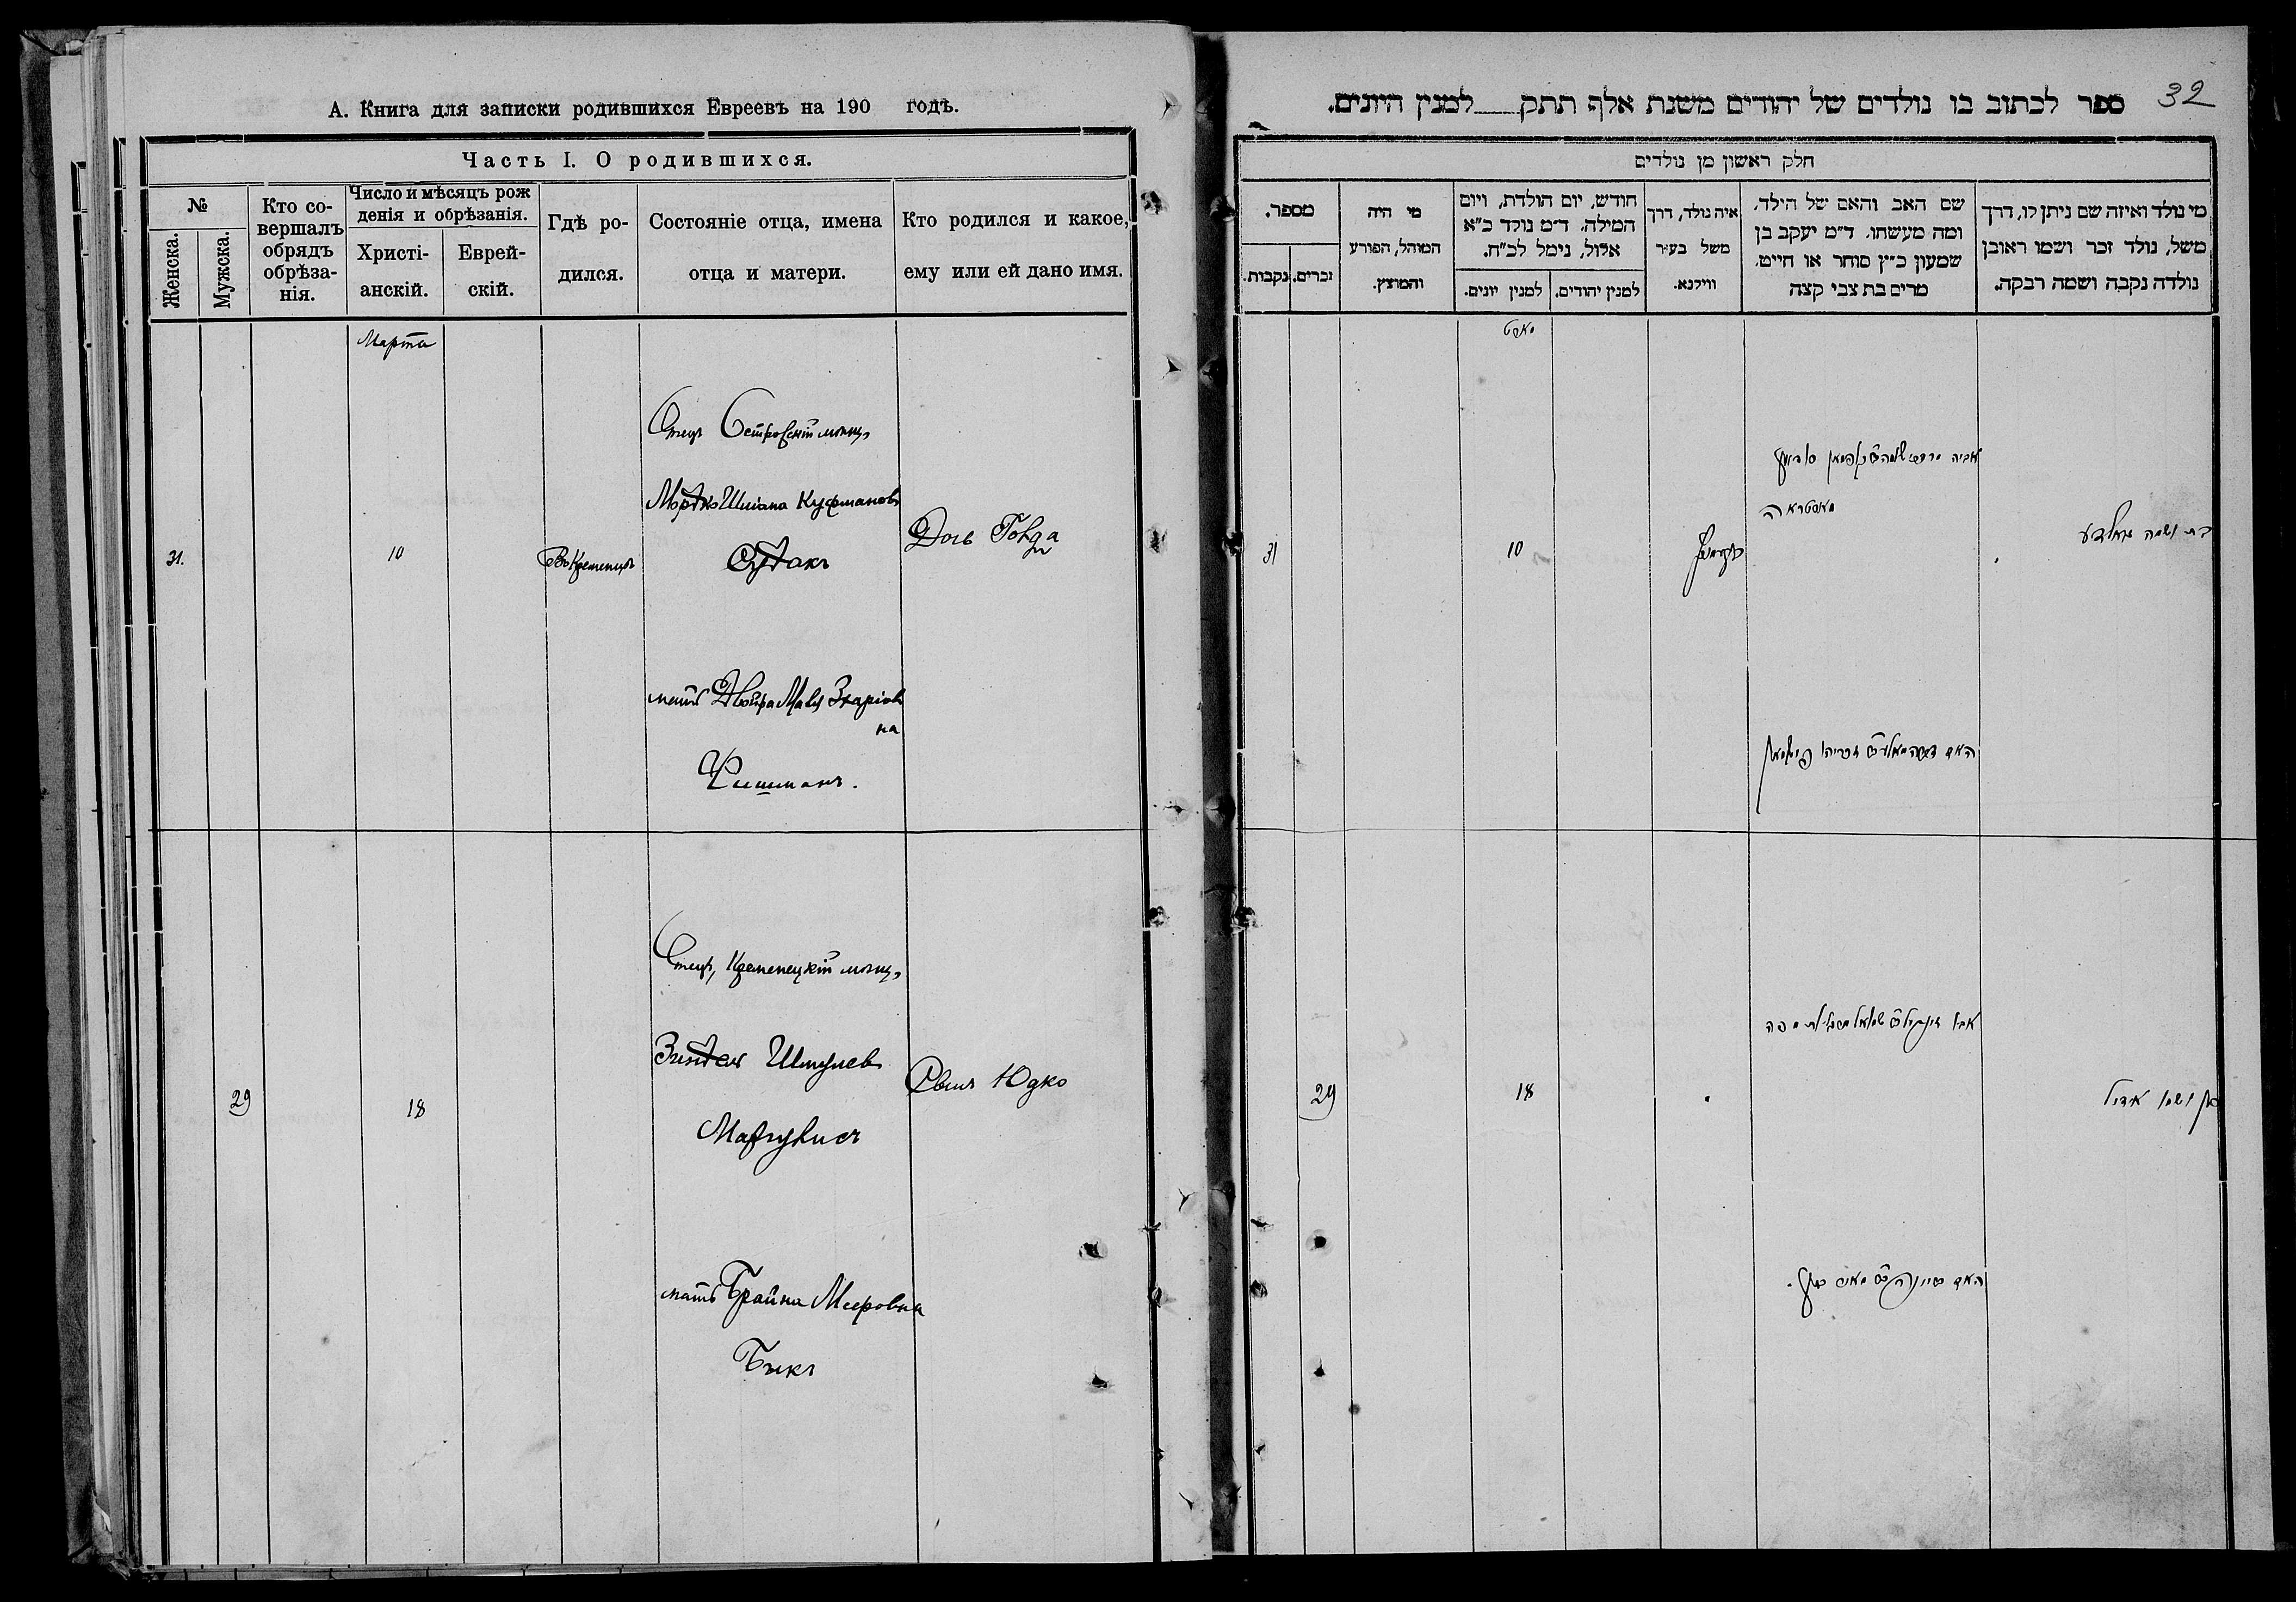 А. Книга для записки родившихся Евреевъ на 190 годъ.
Часть I. О родившихся.
№
Женска.
Мужска.
Кто со-
вершалъ
обрядъ
обрѣза-
нія.
Число и мѣсяцъ рож
денія и обрѣзанія.
Христі-
анскій.
Еврей-
скій.
Гдѣ ро-
дился.
Состояніе отца, имена
отца и матери.
Кто родился и какое,
ему или ей дано имя.
Марта
31.
10
Въ Кременцѣ
Отецъ Островскій мѣщ.
Мордко Шліома Куфмановъ
Судакъ
мать Двойра Маля Зхаріов
на
Фишманъ.
Дочь Голда
29
18
Отецъ, Кременецкій мѣщ.
Зейдел Шмулев
Маргулисъ
мать Брайна Мееровна
Бикъ
Сынъ Юдко
32
ספר לכתוב בו נולדים של יהודים משנת אלף תתק למנין היונים.
חלק ראשון מן נולדים
מספר.
נקבות.
זכרים.
מי היה
המוהל, הפורע
והמוצץ.
חודש, יום הולדת, ויום
המילה. ד״מ נולד כ״א
אלול, נימל לכ״ח.
למנין יונים.
למנין יהודים.
איה נולד, דרך
משל בעיר
ווילנא.
שם האב והאם של הילד.
ומה מעשהו. ד״מ יעקב בן
שמעון כ״ץ סוחר או חייט.
מרים בת צבי קצה
מי נולד ואיזה שם ניתן לו, דרך
משל, נולד זכר ושמו ראובן
נולדה נקבה ושמה רבקה.
מארט
31
10
קרעמניץ
מאסטראה
בת ושמה גאלדע
29
18